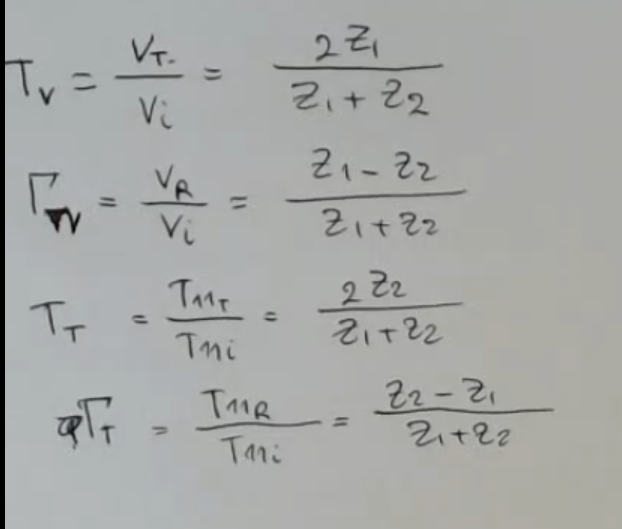 T_V = V_T / V_i = 2 Z_1 / Z_1 + Z_2
Γ_V = V_R / V_i = Z_1 - Z_2 / Z_1 + Z_2
T_T = T_11T / T_11i = 2 Z_2 / Z_1 + Z_2
Γ_T = T_11R / T_11i = Z_2 - Z_1 / Z_1 + Z_2